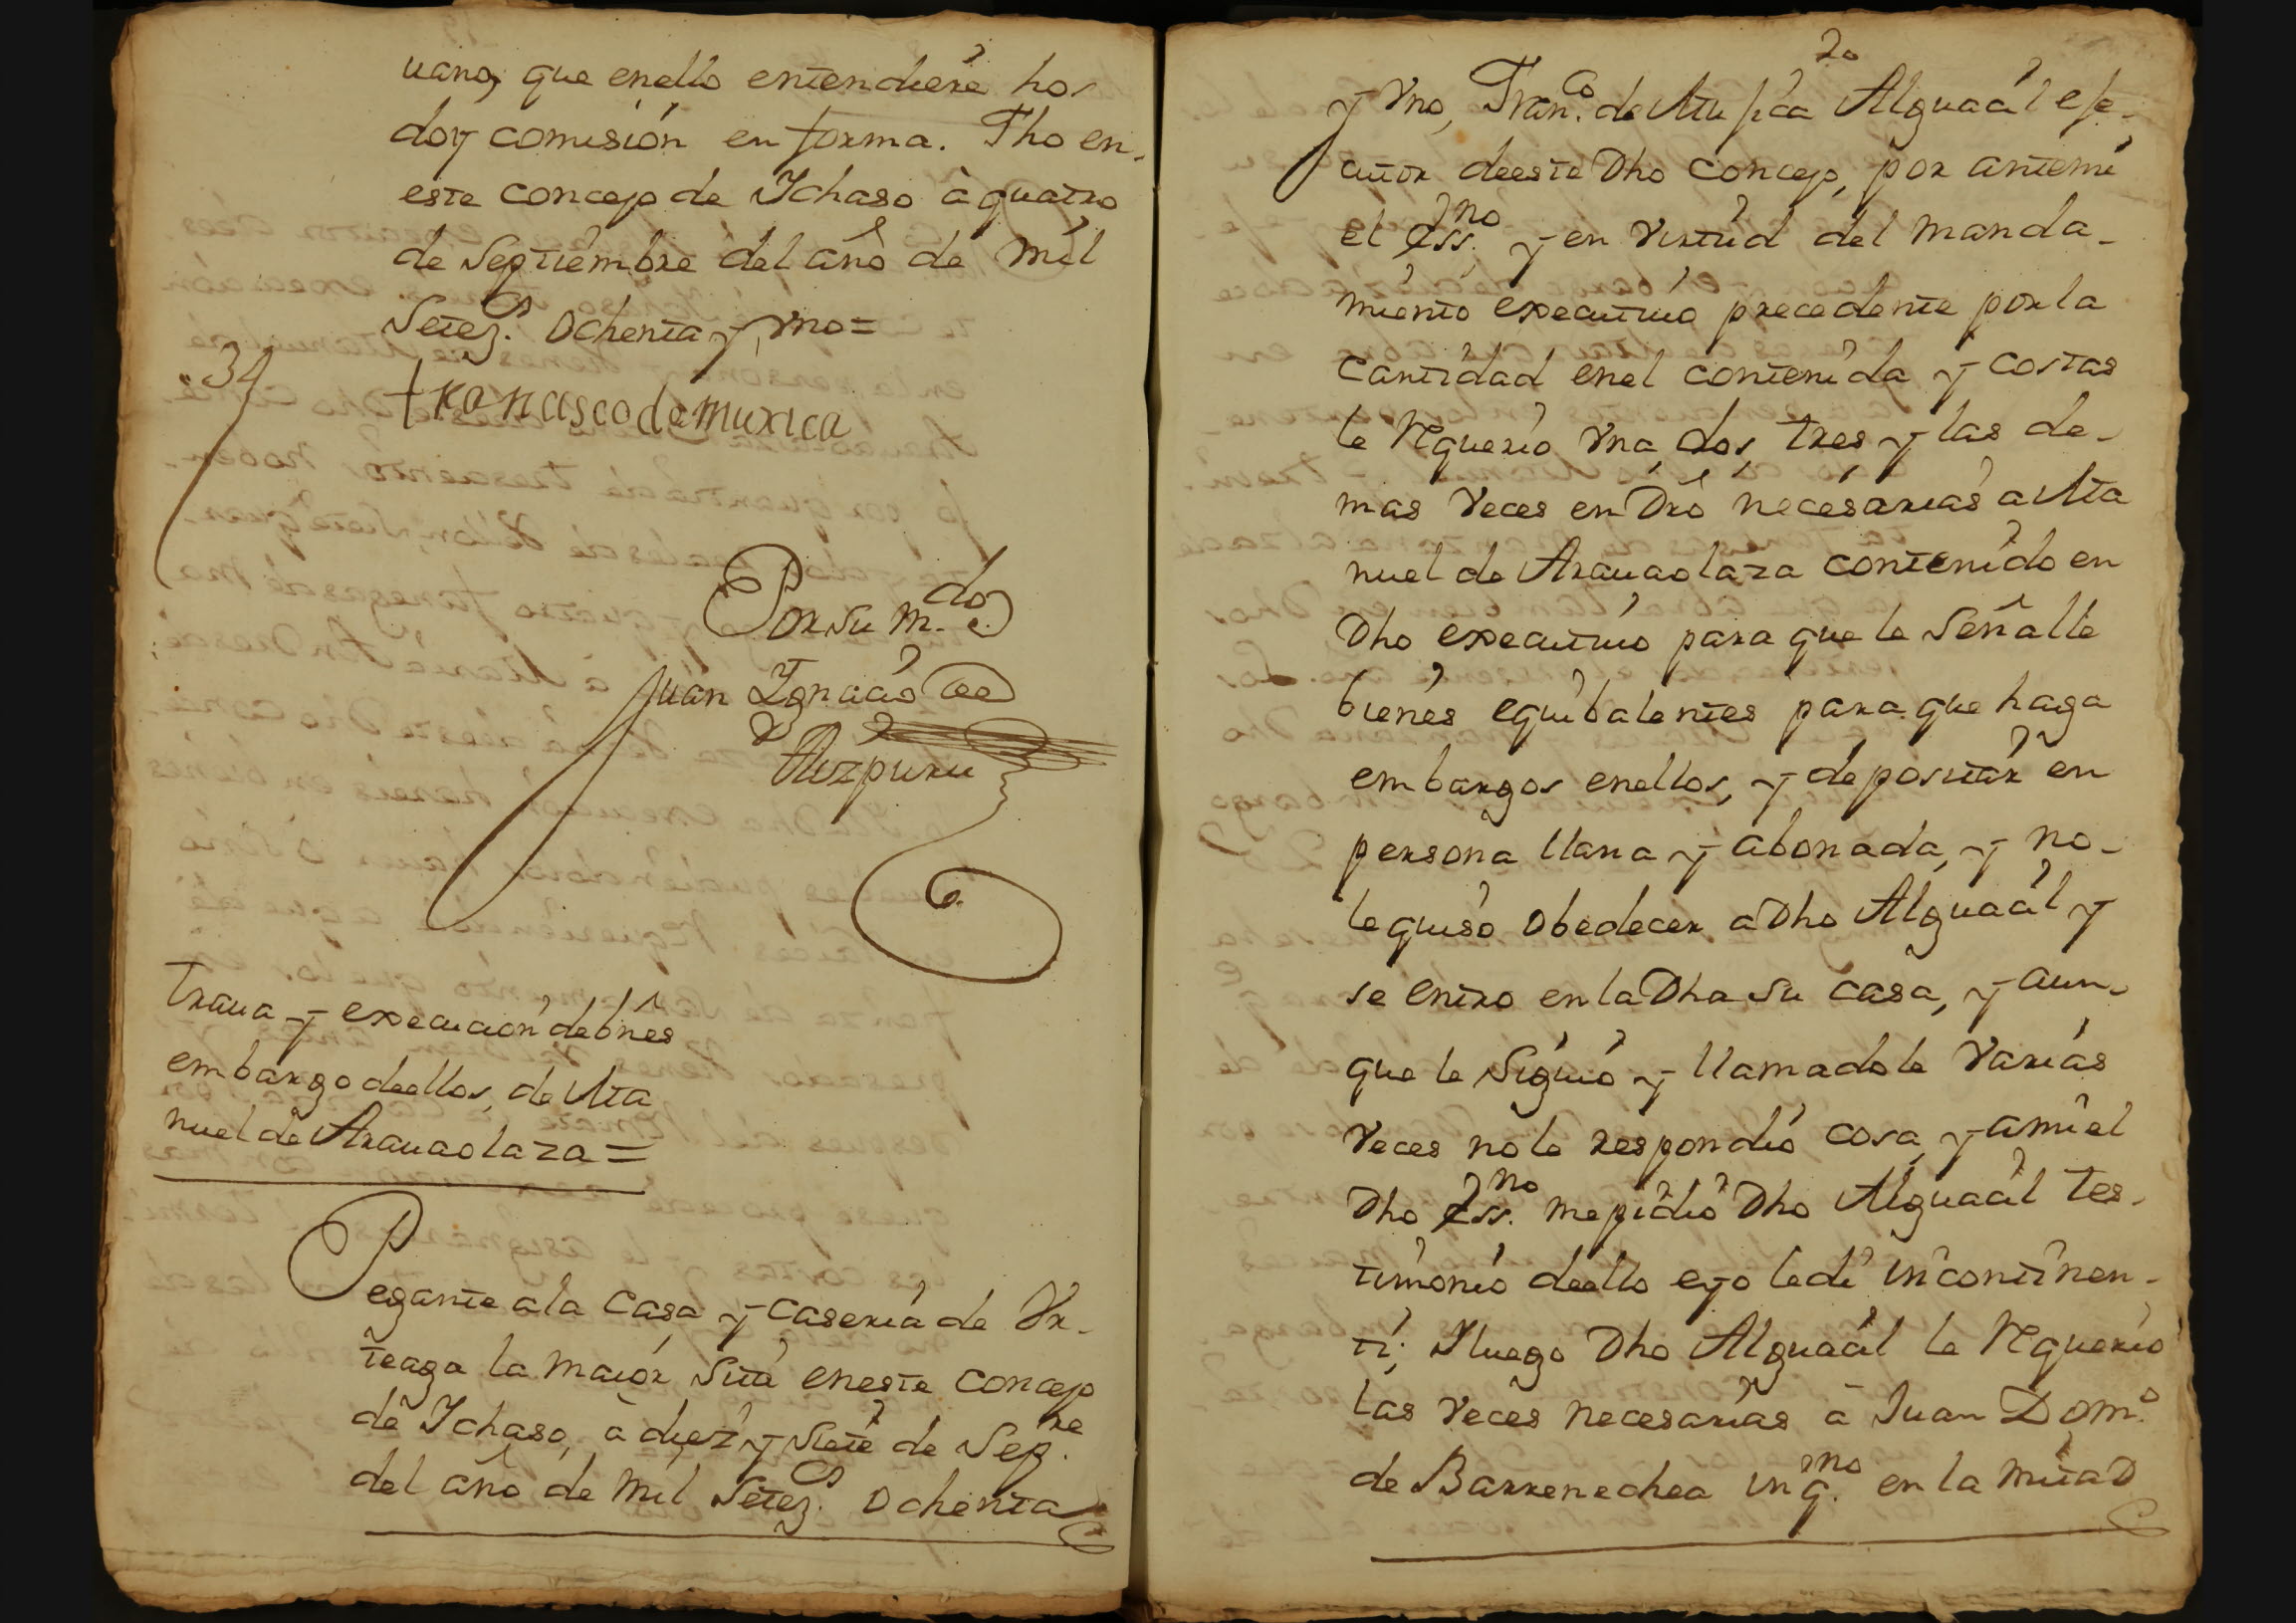 uano, que enello entendiere ho,
doy comisión en forma. Fho en
este concejo de Ychaso à quatro
de Septiembre del año de mil
Setez.s ochenta y, vno=
34
franciscodemuxica
Por su m.do
Juan Ygnacio de
Aizpuru
Traua y execucion de bnes
embargo deellos, de Ma
nuel de Arauaolaza=
Pegante ala Casa y caseria de Vr-
teaga la maior Sita eneste concejo
de Ychaso, à diez y siete de Sep.re
del año de mil Setez.s ochenta
20
y vno, Fran.co de Mujica Alguacil eje-
cutor deeste Dho concejo, por antemi
el Ess.no y en virtud del manda-
miento executiuo precedente por la
cantidad enel contenida y costas
le requerio vna, dos, tres y las de-
mas veces en Dro necesarias a Ma
nuel de Arauaolaza contenido en
Dho executiuo para que le Señalle
bienes equibalentes para que haga
embargos enellos, y depositar en
persona llana y abonada, y no-
le quiso obedecer a Dho Alguacil y
se entro en la Dha su casa, y aun-
que le Siguio y llamadole varias
veces no le respondio cosa, y amiel
Dho Ess.no me pidio Dho Alguacil tes-
timonio deello e yo ledi incontinen-
ti; Y luego Dho Alguacil le requerio
las veces necesarias a Juan Dom.o
de Barrenechea inq.no en la mitaD